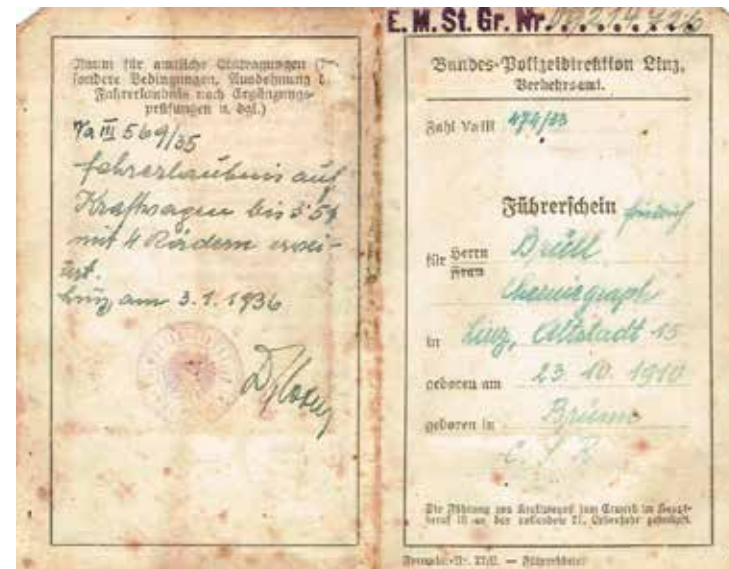 Raum für amtliche Eintragungen (Be-
sondere Bedingungen, Ausdehnung d.
Fahrerlaubnis nach Ergänzungs-
prüfungen u. dgl.)
Va III 569/35
Fahrerlaubnis auf
Kraftwagen bis 3·5t
mit 4 Rädern erwei-
tert.
Linz am 3.1.1936
E. M. St. Gr. Nr.
Bundes-Polizeidirektion Linz,
Verkehrsamt.
Zahl Va III 474/33
Führerschein
für Herrn Brüll
Frau
Chemigraph
in Linz, Altstadt 15
geboren am 23. 10. 1910
geboren in Brünn
C. S. R.
Die Führung von Kraftwagen zum Erwerb im Haupt-
beruf ist an das vollendete 21. Lebensjahr geknüpft.
— Führerschein